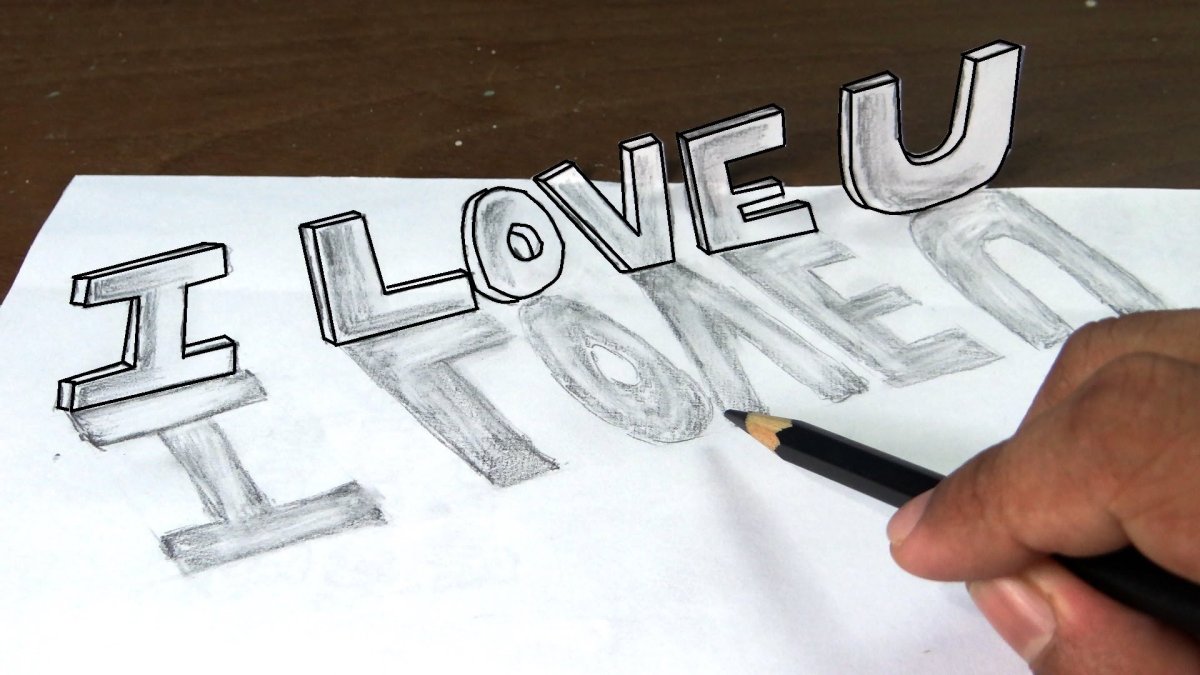 I LOVE U